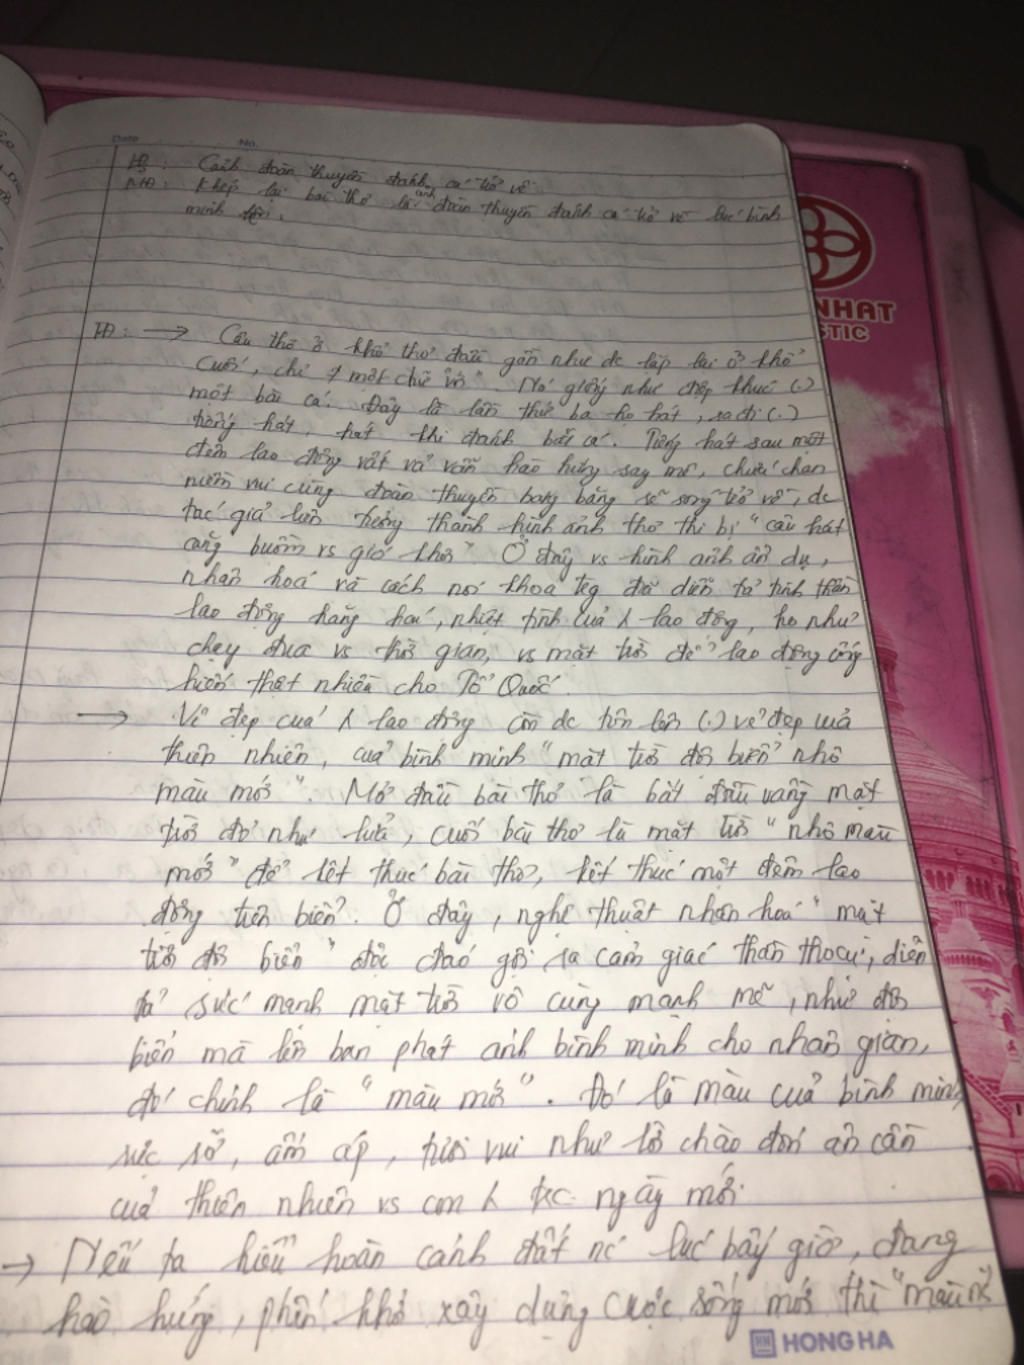 Date No.
Cảnh đoàn thuyền đánh cá trở về
NHĐ: Khép lại bài thơ là ảnh đoàn thuyền đánh cá trở về lúc bình
minh lên.
HĐ: → Câu thơ ở khổ thơ đầu gần như đc lặp lại ở khổ
cuối, chỉ ≠ một chữ "với". Nó giống như điệp khúc (.)
một bài ca. Đây là lần thứ ba họ hát, ra đi (.)
tiếng hát, hát khi đánh bắt cá. Tiếng hát sau một
đêm lao động vất vả vẫn hào hứng say mê, chứa chan
niềm vui cùng đoàn thuyền băng băng rẽ sóng trở về, đc
tác giả liên tưởng thành hình ảnh thơ thi bị "câu hát
căng buồm vs gió khơi" Ở đây vs hình ảnh ẩn dụ,
nhân hoá và cách nói khoa trg đã diễn tả tinh thần
lao động hăng hái, nhiệt tình của λ lao động, họ như
chạy đua vs thời gian, vs mặt trời để lao động cống
hiến thật nhiều cho Tổ Quốc.
→ Vẻ đẹp của λ lao động còn đc tôn lên (.) vẻ đẹp của
thiên nhiên, của bình minh "mặt trời đội biển nhô
màu mới". Mở đầu bài thơ là bắt đầu vầng mặt
trời đỏ như lửa, cuối bài thơ là mặt trời "nhô màu
mới" để kết thúc bài thơ, kết thúc một đêm lao
động trên biển. Ở đây, nghệ thuật nhân hoá "mặt
trời đội biển" độc đáo gợi ra cảm giác thần thoại, diễn
tả sức mạnh mặt trời vô cùng mạnh mẽ, như đội
biển mà lên ban phát ánh bình minh cho nhân gian,
đó chính là "màu mới". Đó là màu của bình minh
rực rỡ, ấm áp, tươi vui như lời chào đón ân cần
của thiên nhiên vs con λ trc ngày mới.
→ Nếu ta hiểu hoàn cảnh đất nc lúc bấy giờ, đang
hào hứng, phấn khởi xây dựng cuộc sống mới thì "màu
HH HONG HA
NHAT
STIC